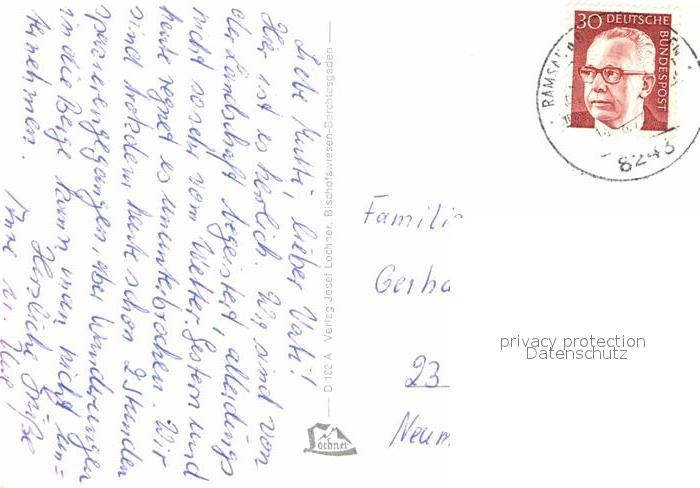 Liebe Mutti, lieber Vati!
Hier ist es herrlich. Wir sind von
der Landschaft begeistert, allerdings
nicht so sehr vom Wetter. Gestern und
heute regnet es ununterbrochen. Wir
sind trotzdem heute schon 2 Stunden
spazierengegangen, aber Wanderungen
in die Berge kann man nicht un=
ternehmen.
Herzliche Grüße
D 182 A Verlag Josef Lochner, Bischofswiesen-Berchtesgaden
Lochner
30 DEUTSCHE
BUNDESPOST
RAMSAU
8243
Familie
Gerha
23
Neum
privacy protection
Datenschutz